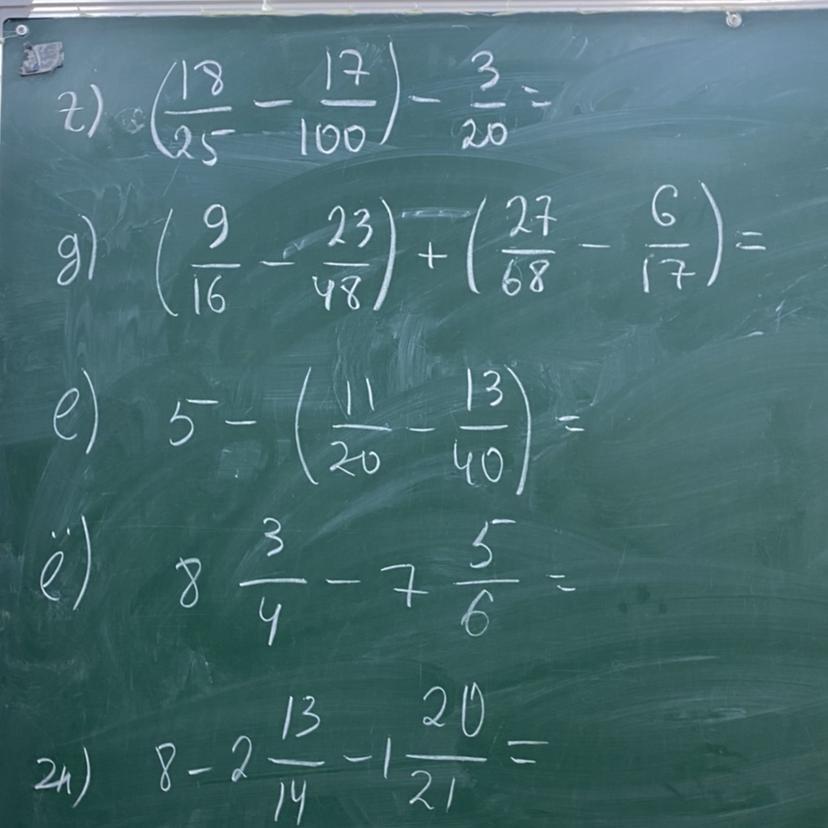 г) (18/25 - 17/100) - 3/20 =
д) (9/16 - 23/48) + (27/68 - 6/17) =
е) 5 - (11/20 - 13/40) =
ё) 8 3/4 - 7 5/6 =
ж) 8 - 2 13/14 - 1 20/21 =